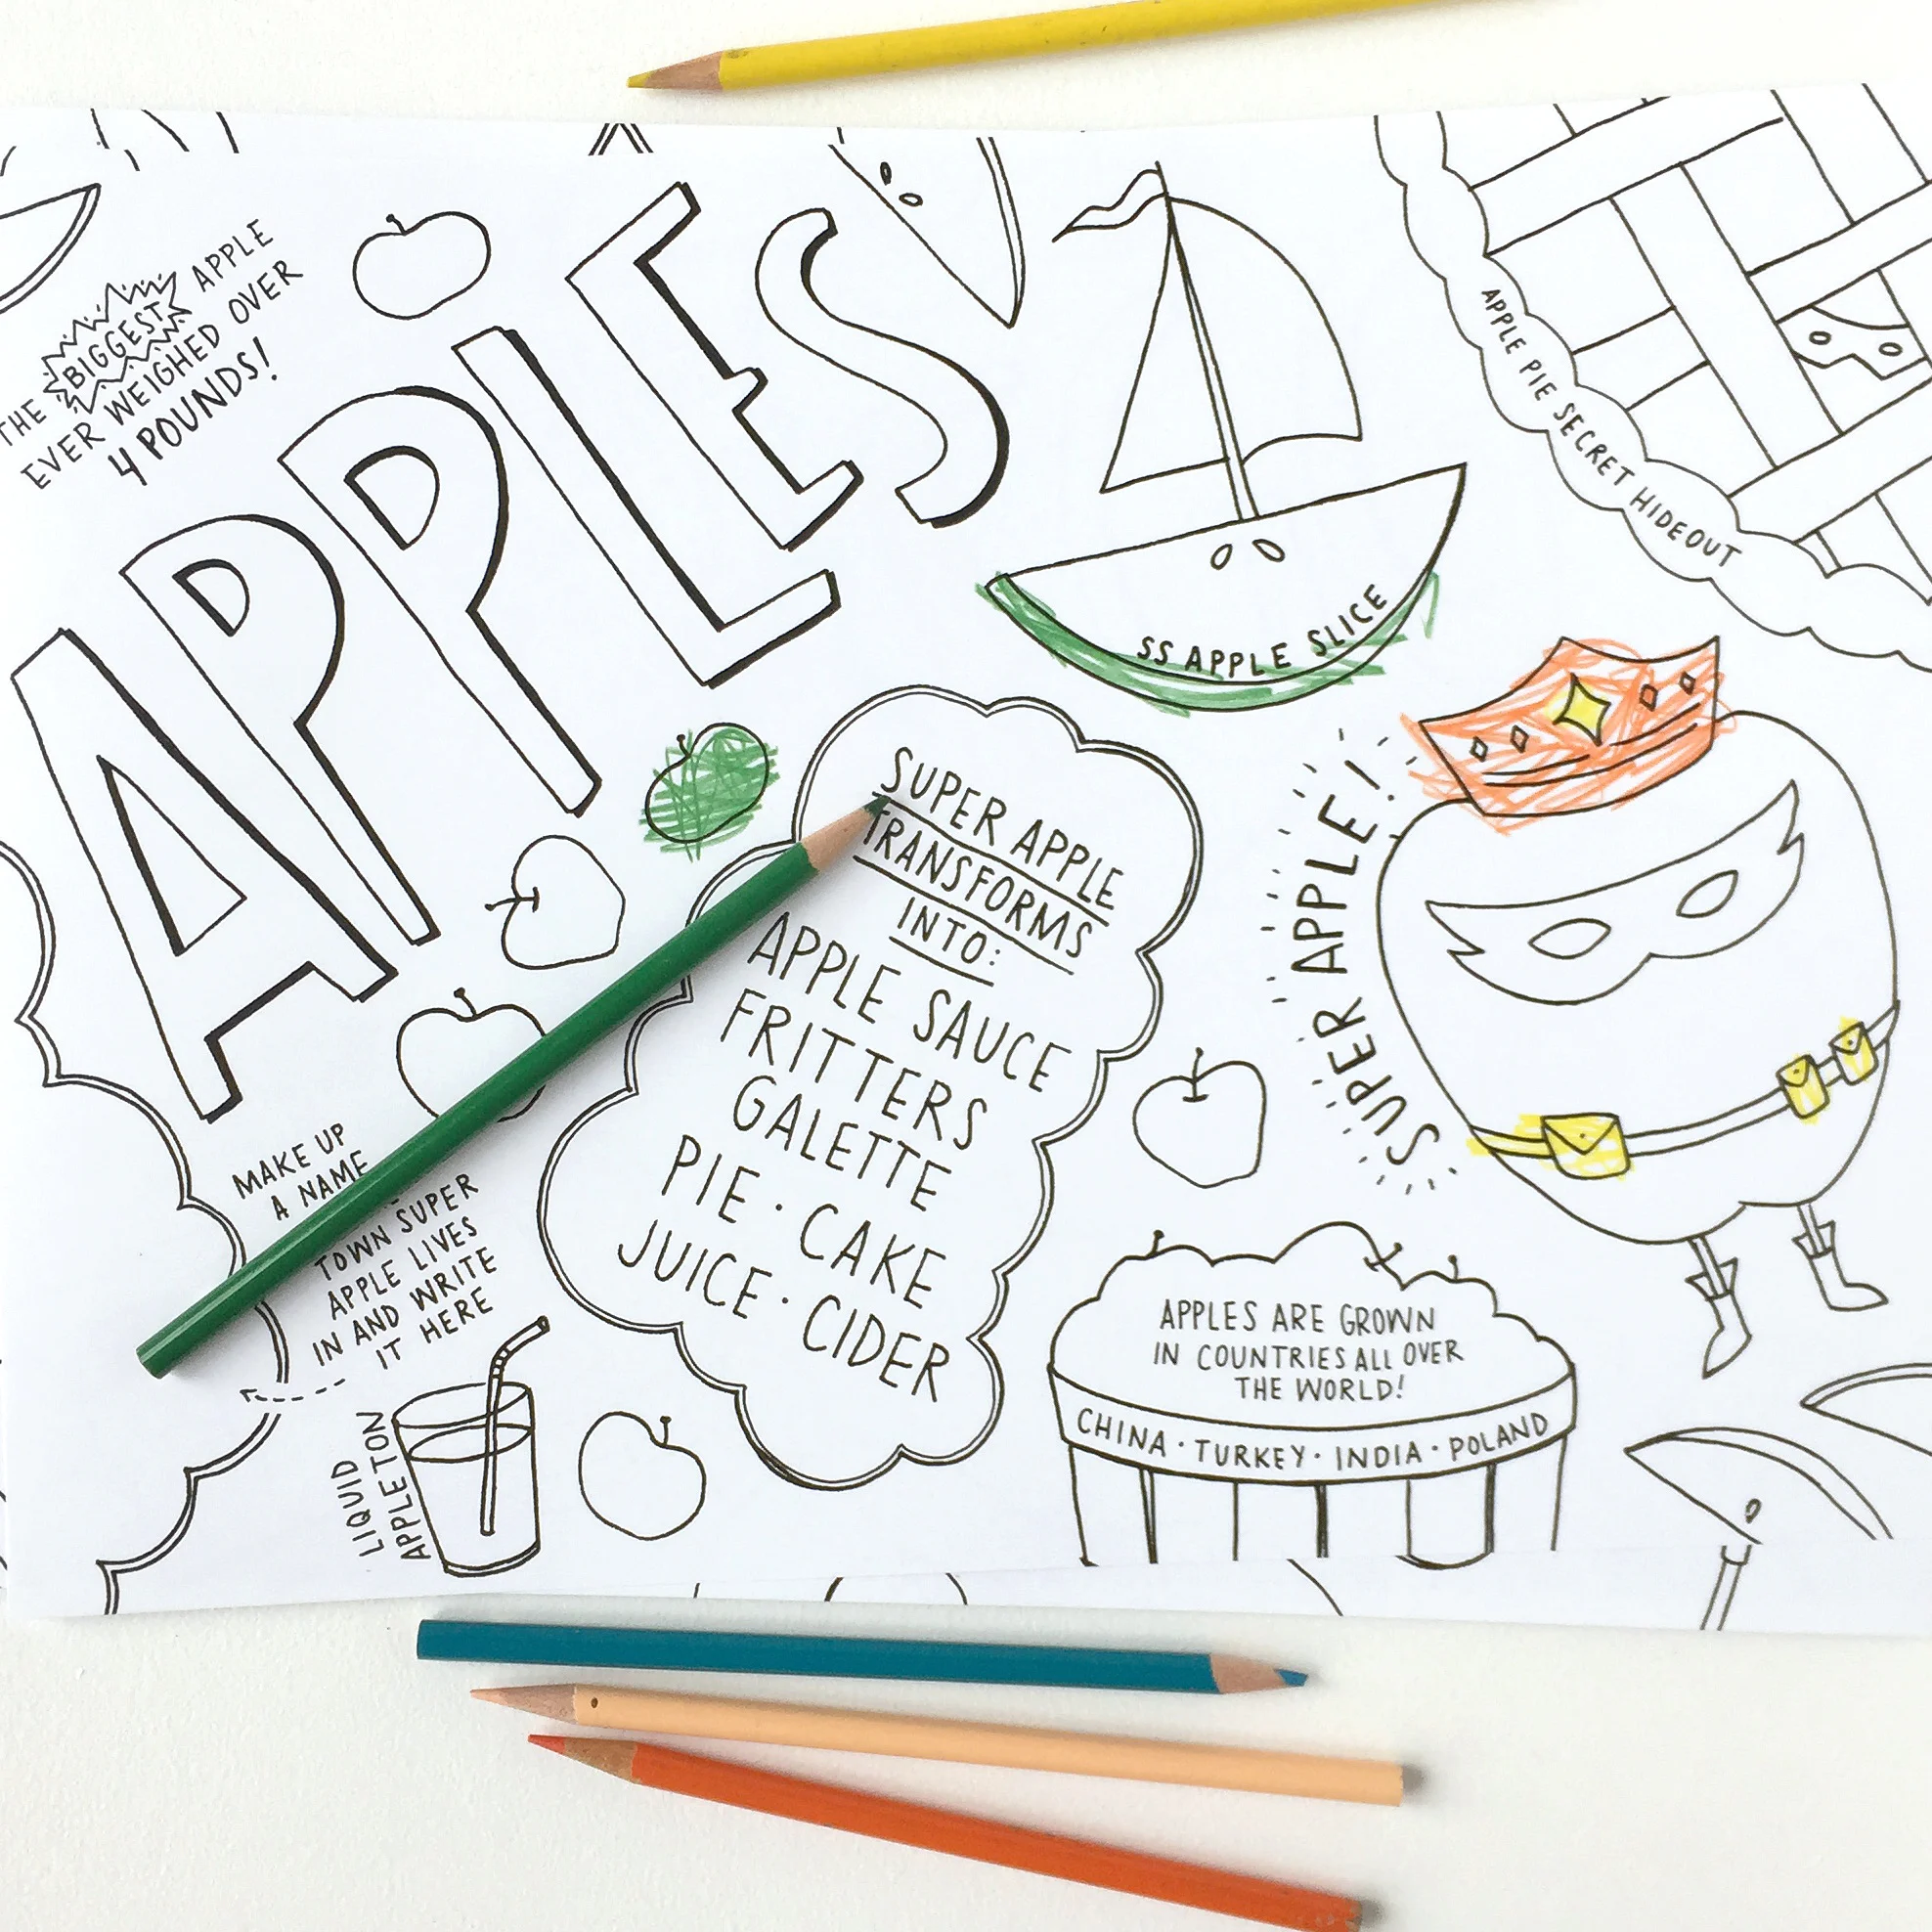 THE BIGGEST APPLE
EVER WEIGHED OVER
4 POUNDS!
APPLES
APPLE PIE SECRET HIDEOUT
SS APPLE SLICE
SUPER APPLE
TRANSFORMS
INTO:
APPLE SAUCE
FRITTERS
GALETTE
PIE · CAKE
JUICE · CIDER
SUPER APPLE!
MAKE UP
A NAME
TOWN SUPER
APPLE LIVES
IN AND WRITE
IT HERE
LIQUID
APPLETON
APPLES ARE GROWN
IN COUNTRIES ALL OVER
THE WORLD!
CHINA · TURKEY · INDIA · POLAND